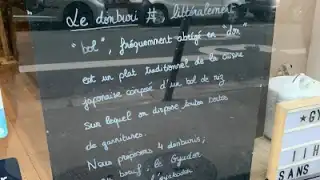 Le donburi # littéralement
"bol", fréquemment abrégé en "don"
est un plat traditionnel de la cuisine
japonaise composé d'un bol de riz
sur lequel on dispose toutes sortes
de garnitures.
Nous proposons 4 donburis ;
au bœuf ; le Gyudon
l'oyakodon
"GY
11H
SANS